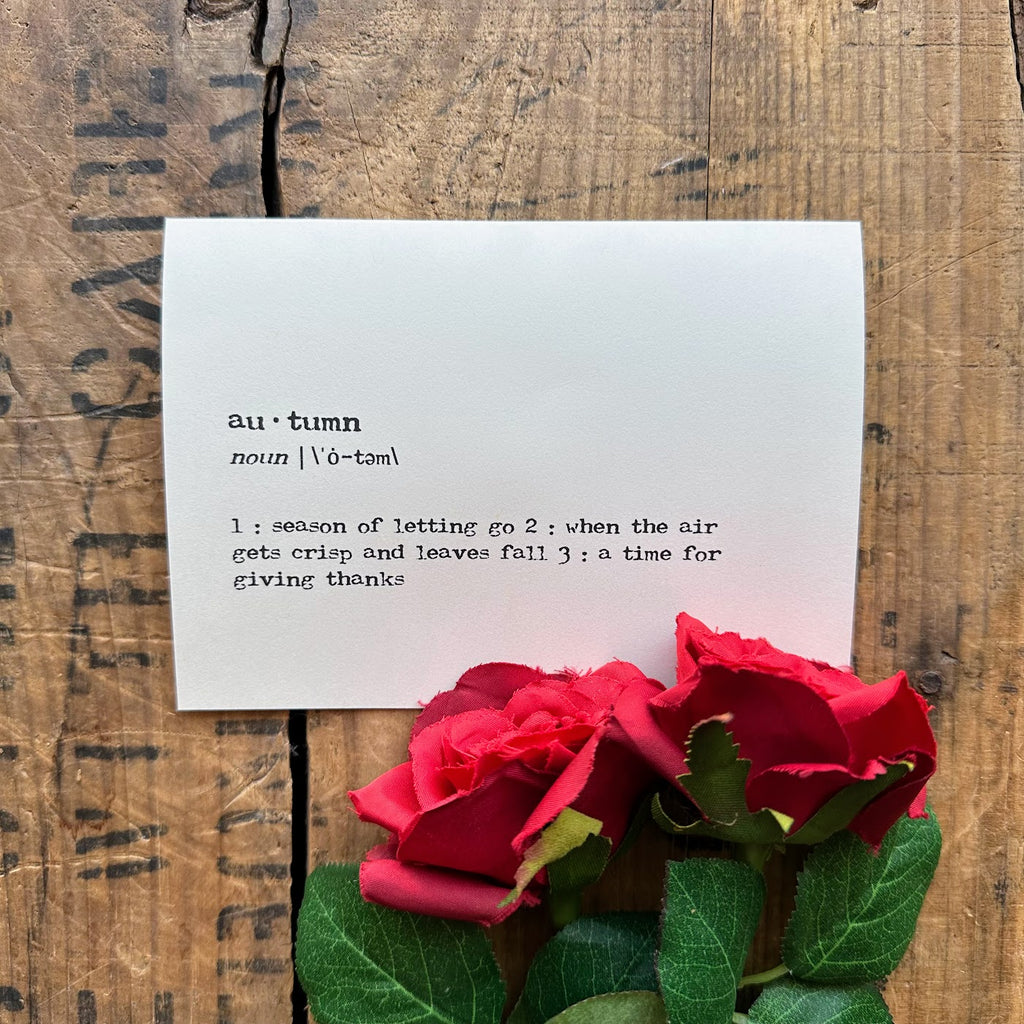 au·tumn
noun |\ˈȯ-təm\
1 : season of letting go 2 : when the air
gets crisp and leaves fall 3 : a time for
giving thanks